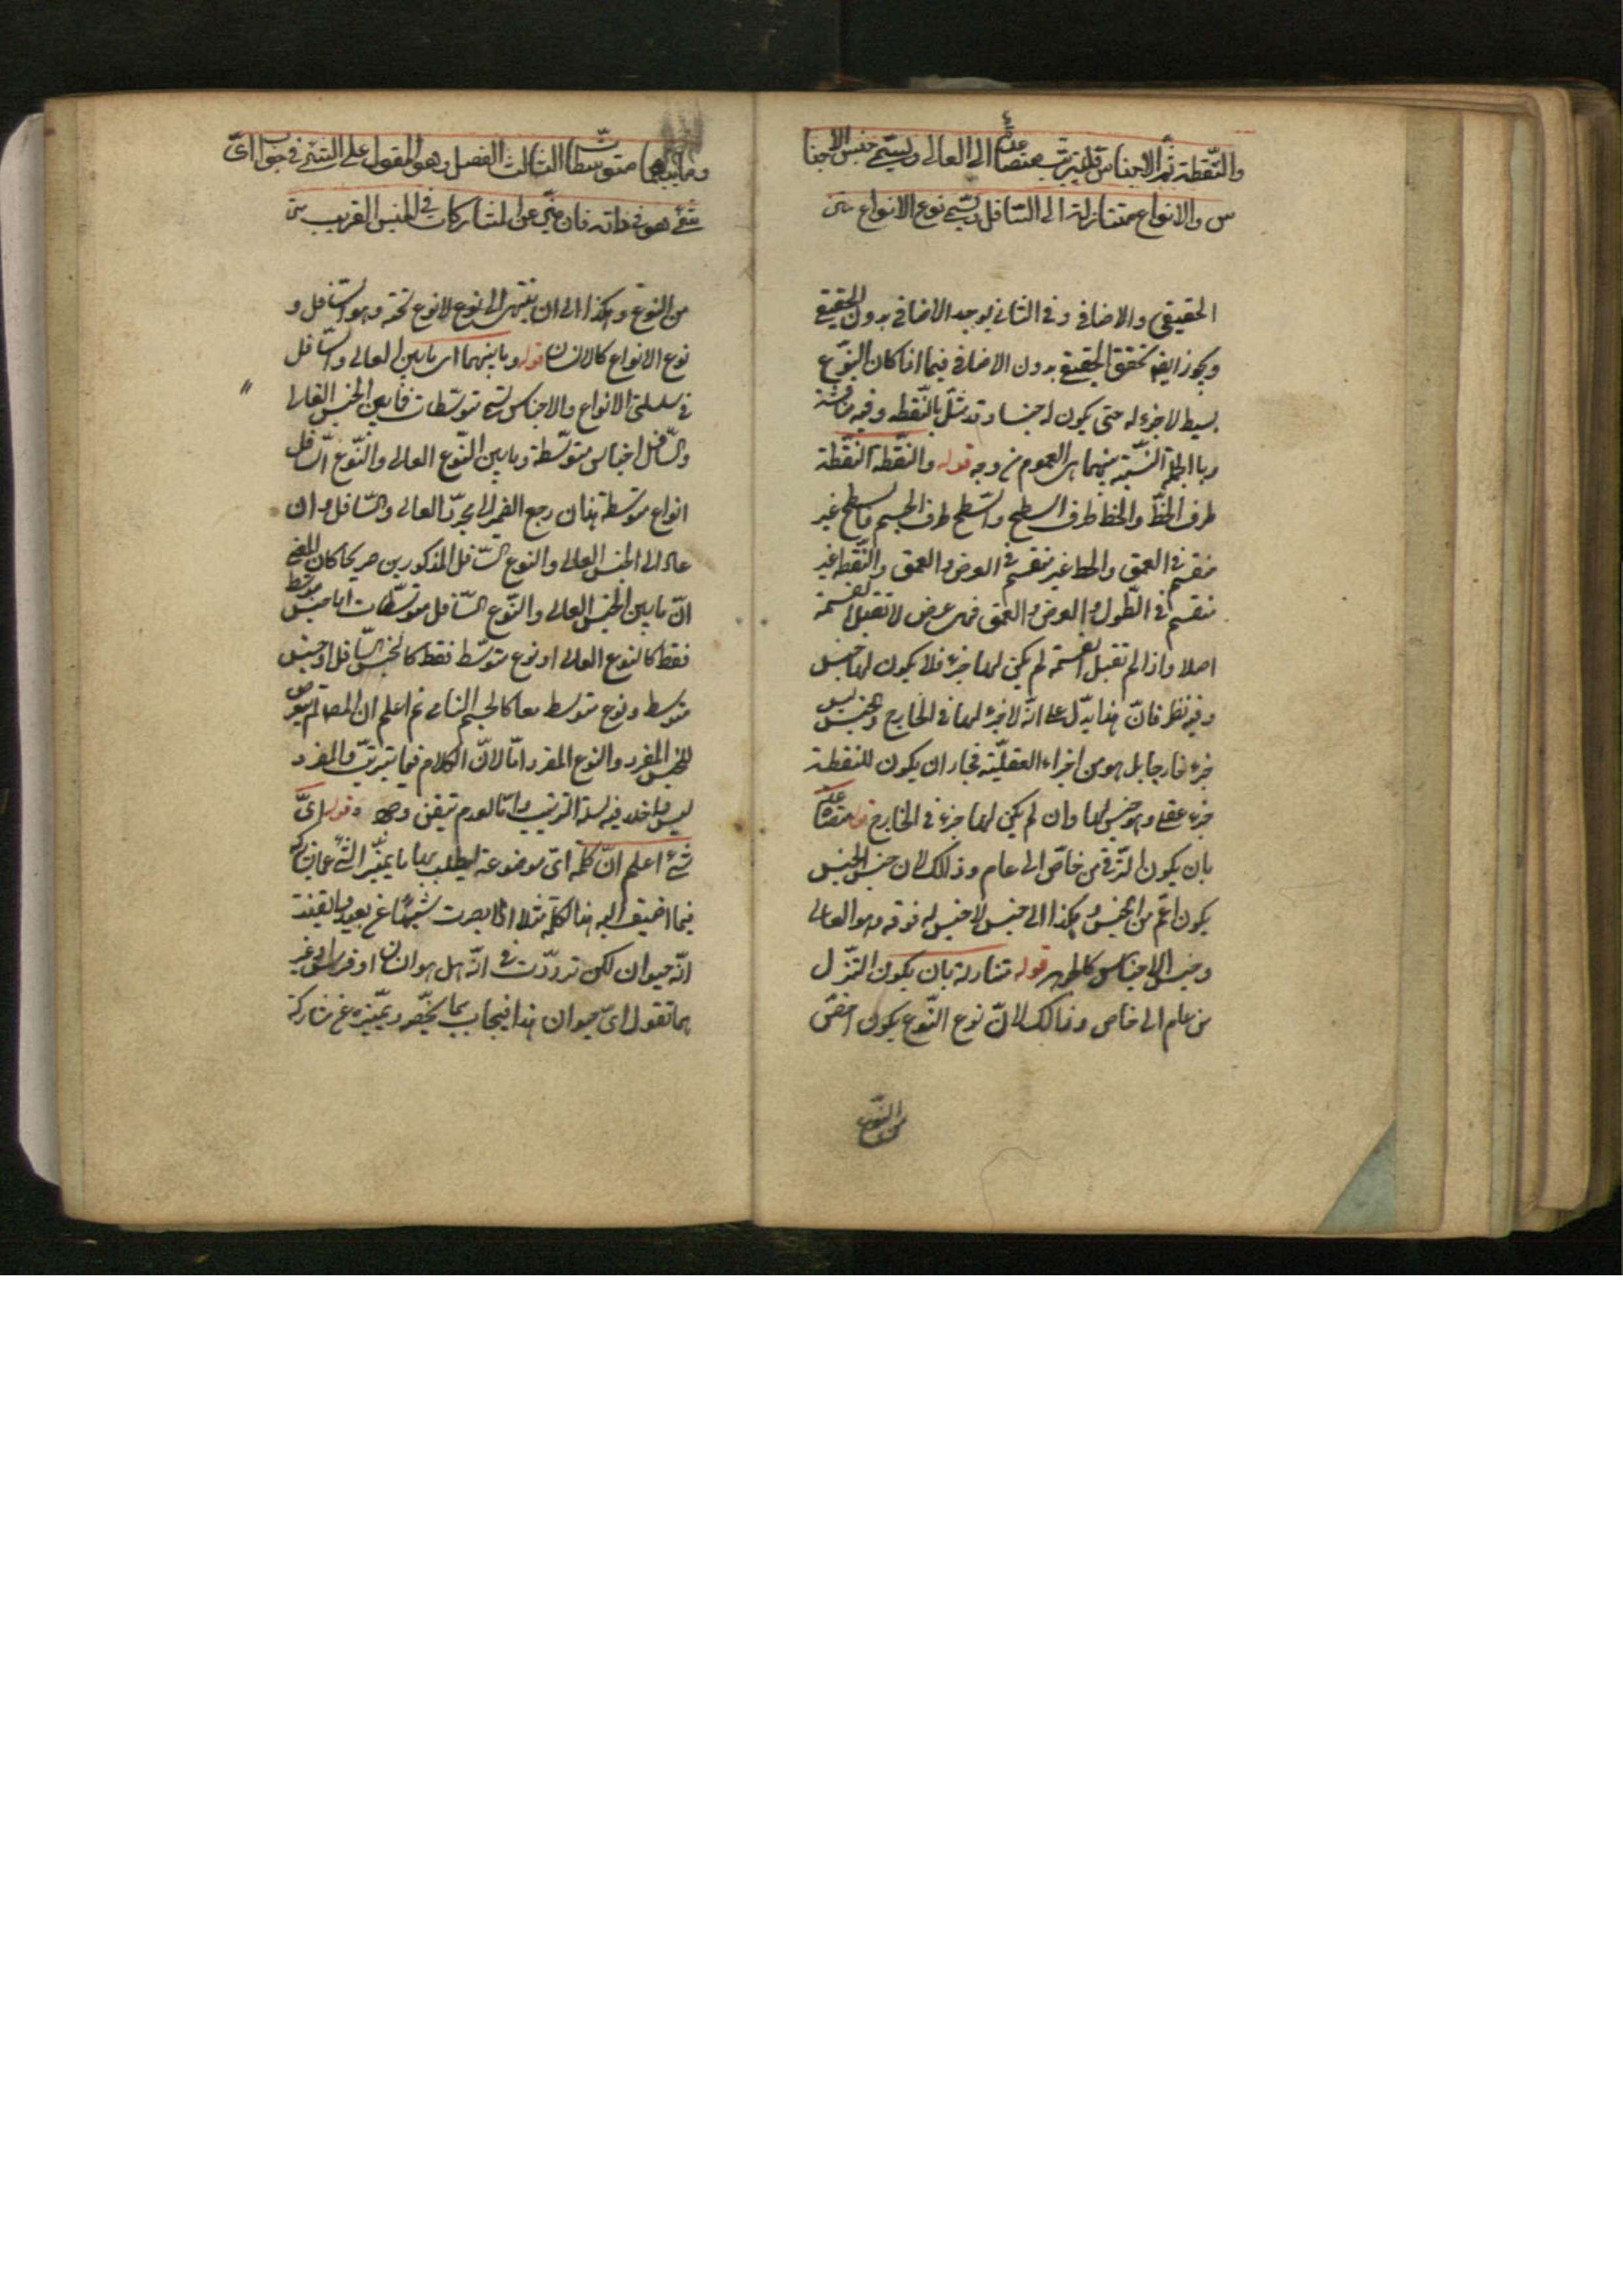 والنقطة ثم الاجناس قد تترتب متصاعدة الى العالى ويسمى جنس الاجنا
س والانواع متنازلة الى السافل ويسمى نوع الانواع
الحقيقي والاضافي وفي الثاني يوجد الاضافي بدون الحقيقي
ويجوز ايضا تحقق الحقيقي بدون الاضافي فيما اذا كان النوع
بسيطا لا جزء له حتى يكون له جنسا وقد مثّل بالنّقطه وفيه مناقشة
وبالجملة النّسبة بينهما هى العموم من وجه قوله والنّقطة النّقطة
طرف الخطّ والخط طرف السطح والسّطح طرف الجسم فالسطح غير
منقسم فى العمق والخط غير منقسم فى العرض والعمق والنّقطة غير
منقسم فى الطّول والعرض والعمق فهى عرض لا تقبل القسمة
اصلا واذا لم تقبل القسمة لم يكن لها جزء فلا يكون لها جنس
وفيه نظر فانّ هذا يدلّ على انّه لا جزء لها فى الخارج والجنس ليس
جزء خارجيا بل هو من اجزاء العقليّة فجاز ان يكون للنقطة
جزء عقلى وهو جنس لها وان لم يكن لها جزء فى الخارج قوله متصاعدة
بان يكون الترّقى من خاصّ الى عام وذلك لان جنس الجنس
يكون اعمّ من الجنس وهكذا الى جنس لا جنس له فوقه وهو العالى
وجنس الاجناس كالجوهر قوله متنازلة بان يكون التنزّل
من عام الى خاص وذالك لانّ نوع النّوع يكون اخصّ
من النّوع
وما بينهما متوسطات الثالث الفصل وهو المقول على الشئ فى جواب اىّ
شئ هو فى ذاته فان ميّز عن المشاركات فى الجنس القريب
من النوع وهكذا الى ان ينتهى الى نوع لا نوع تحته وهو السّافل و
نوع الانواع كالانسان قوله وما بينهما اى ما بين العالى والسّافل
فى سلسلتى الانواع والاجناس تسمى متوسّطات فما بين الجنس العالى
والسّافل اجناس متوسّطة وما بين النّوع العالى والنّوع السّافل
انواع متوسّطة هذا ان رجع الضمير الى مجرّد العالى والسّافل وان
عاد الى الجنس العالى والنوع السّافل المذكورين صريحا كان المعنى
انّ ما بين الجنس العالى والنّوع السّافل متوسّطات اما جنس متوسّط
فقط كالنوع العالى او نوع متوسّط فقط كالجنس السّافل او جنس
متوسط ونوع متوسط معا كالجسم النامى ثم اعلم ان المصـ لم يتعرض
للجنس المفرد والنوع المفرد امّا لانّ الكلام فيما يترتّب والمفرد
ليس داخلا فيه سلسلة الترتيب وامّا لعدم تيقن وجوده قوله اىّ
شئ اعلم انّ كلمة اىّ موضوعة ليطلب بها ما يميّز الشئ عما يشاركه
فيما اضيف اليه هذا الكلمة مثلا اذا ابصرت شيئا عن بعيد وتيقنت
انّه حيوان لكن تردّدت فى انّه هل هو انسان او فرس او غير
هما تقول اىّ حيوان هذا فيجاب بما يخصّصه ويميّزه عن مشاركة